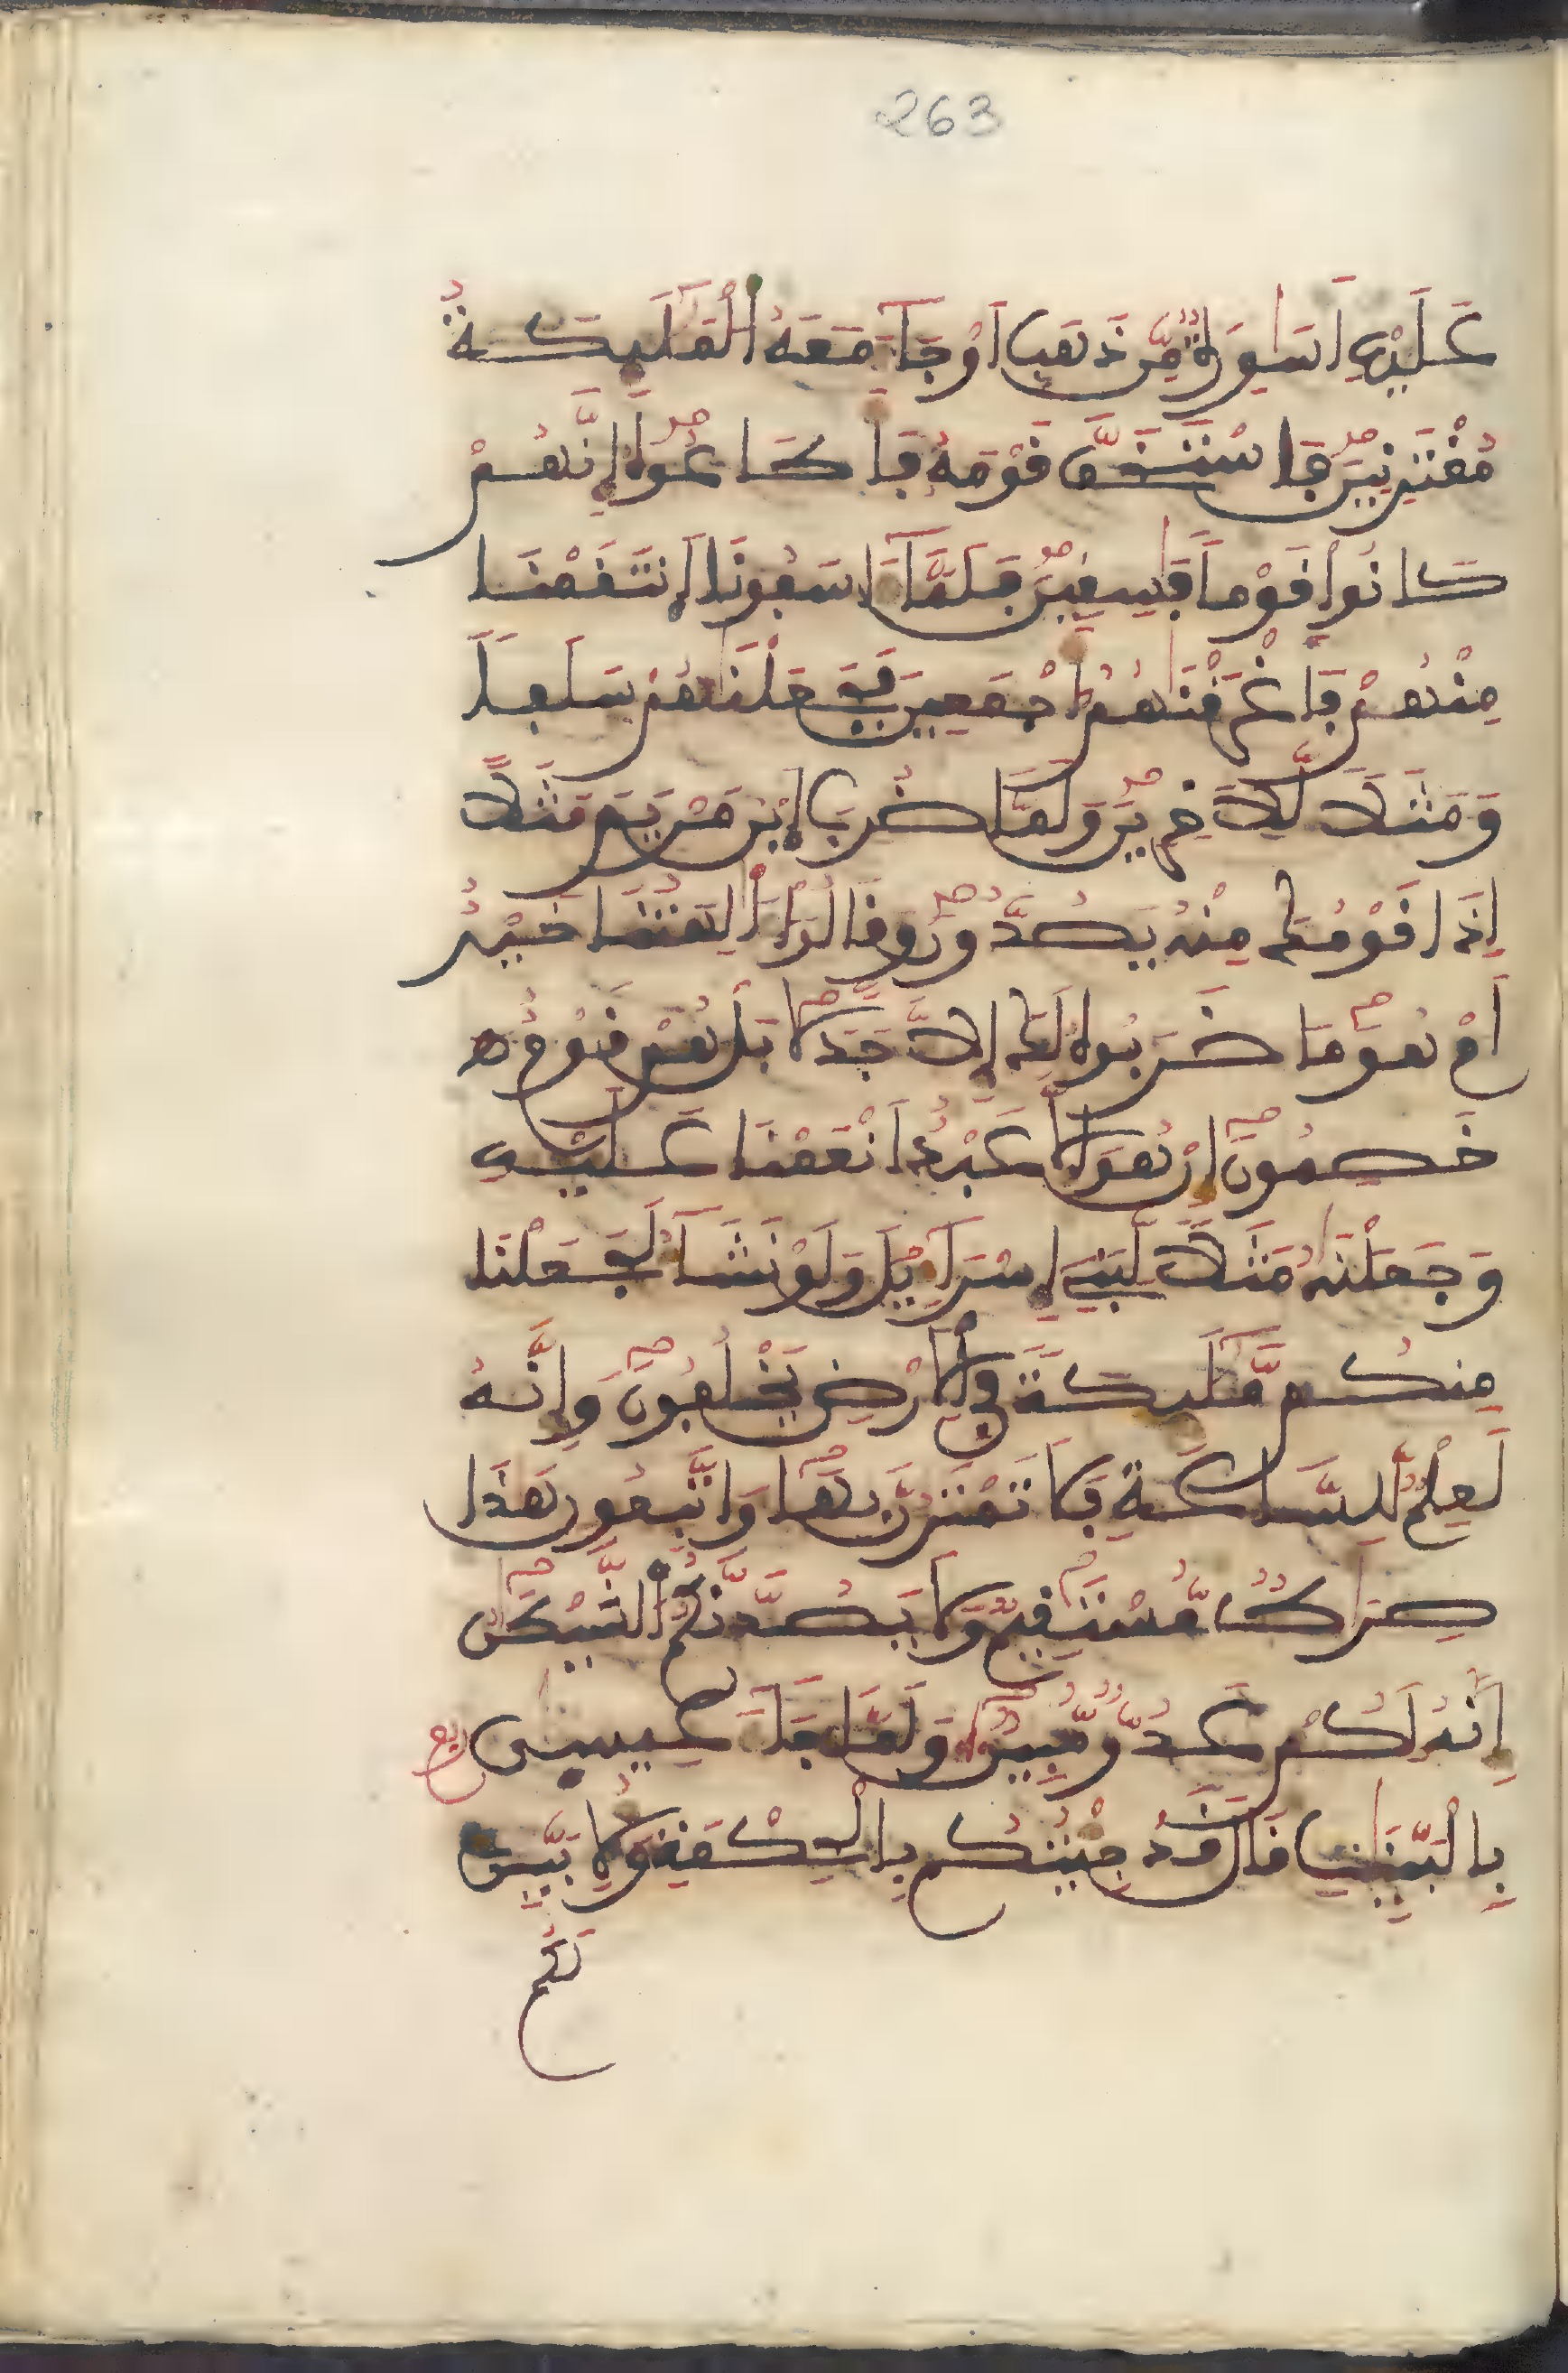 263
عَلَيْهِ أَسَٰوِرَةٌ مِّن ذَهَبٍ اَوْ جَآءَ مَعَهُ اُ۬لْمَلَٰٓئِكَةُ
مُقْتَرِنِينَ فَاسْتَخَفَّ قَوْمَهُۥ فَأَطَاعُوهُ إِنَّهُمْ
كَانُواْ قَوْماً فَٰسِقِينَ فَلَمَّآ ءَاسَفُونَا اَ۪نتَقَمْنَا
مِنْهُمْ فَأَغْرَقْنَٰهُمُۥٓ أَجْمَعِينَ فَجَعَلْنَٰهُمْ سَلَفاً
وَمَثَلًا لِّلَاخِرِينَ وَلَمَّا ضُرِبَ اَ۪بْنُ مَرْيَمَ مَثَلًا
إِذَا قَوْمُكَ مِنْهُ يَصُدُّونَ وَقَالُوٓاْ ءَٰا۬لِهَتُنَا خَيْرٌ
اَمْ هُوَ مَا ضَرَبُوهُ لَكَ إِلَّا جَدَلَۢا بَلْ هُمْ قَوْمٌ
خَصِمُونَ إِنْ هُوَ إِلَّا عَبْدٌ اَنْعَمْنَا عَلَيْهِ
وَجَعَلْنَٰهُ مَثَلًا لِّبَنِےٓ إِسْرَآءِيلَ وَلَوْ نَشَآءُ لَجَعَلْنَا
مِنكُم مَّلَٰٓئِكَةً فِے اِ۬لَارْضِ يَخْلُفُونَ وَإِنَّهُۥ
لَعِلْمٌ لِّلسَّاعَةِ فَلَا تَمْتَرُنَّ بِهَا وَاتَّبِعُونِ هَٰذَا
صِرَٰطٌ مُّسْتَقِيمٌ وَلَا يَصُدَّنَّكُمُ اُ۬لشَّيْطَٰنُ
إِنَّهُۥ لَكُمْ عَدُوٌّ مُّبِينٌ وَلَمَّا جَآءَ عِيسٰى
بِالْبَيِّنَٰتِ قَالَ قَدْ جِئْتُكُم بِالْحِكْمَةِ وَلِأُبَيِّنَ
لَكُم